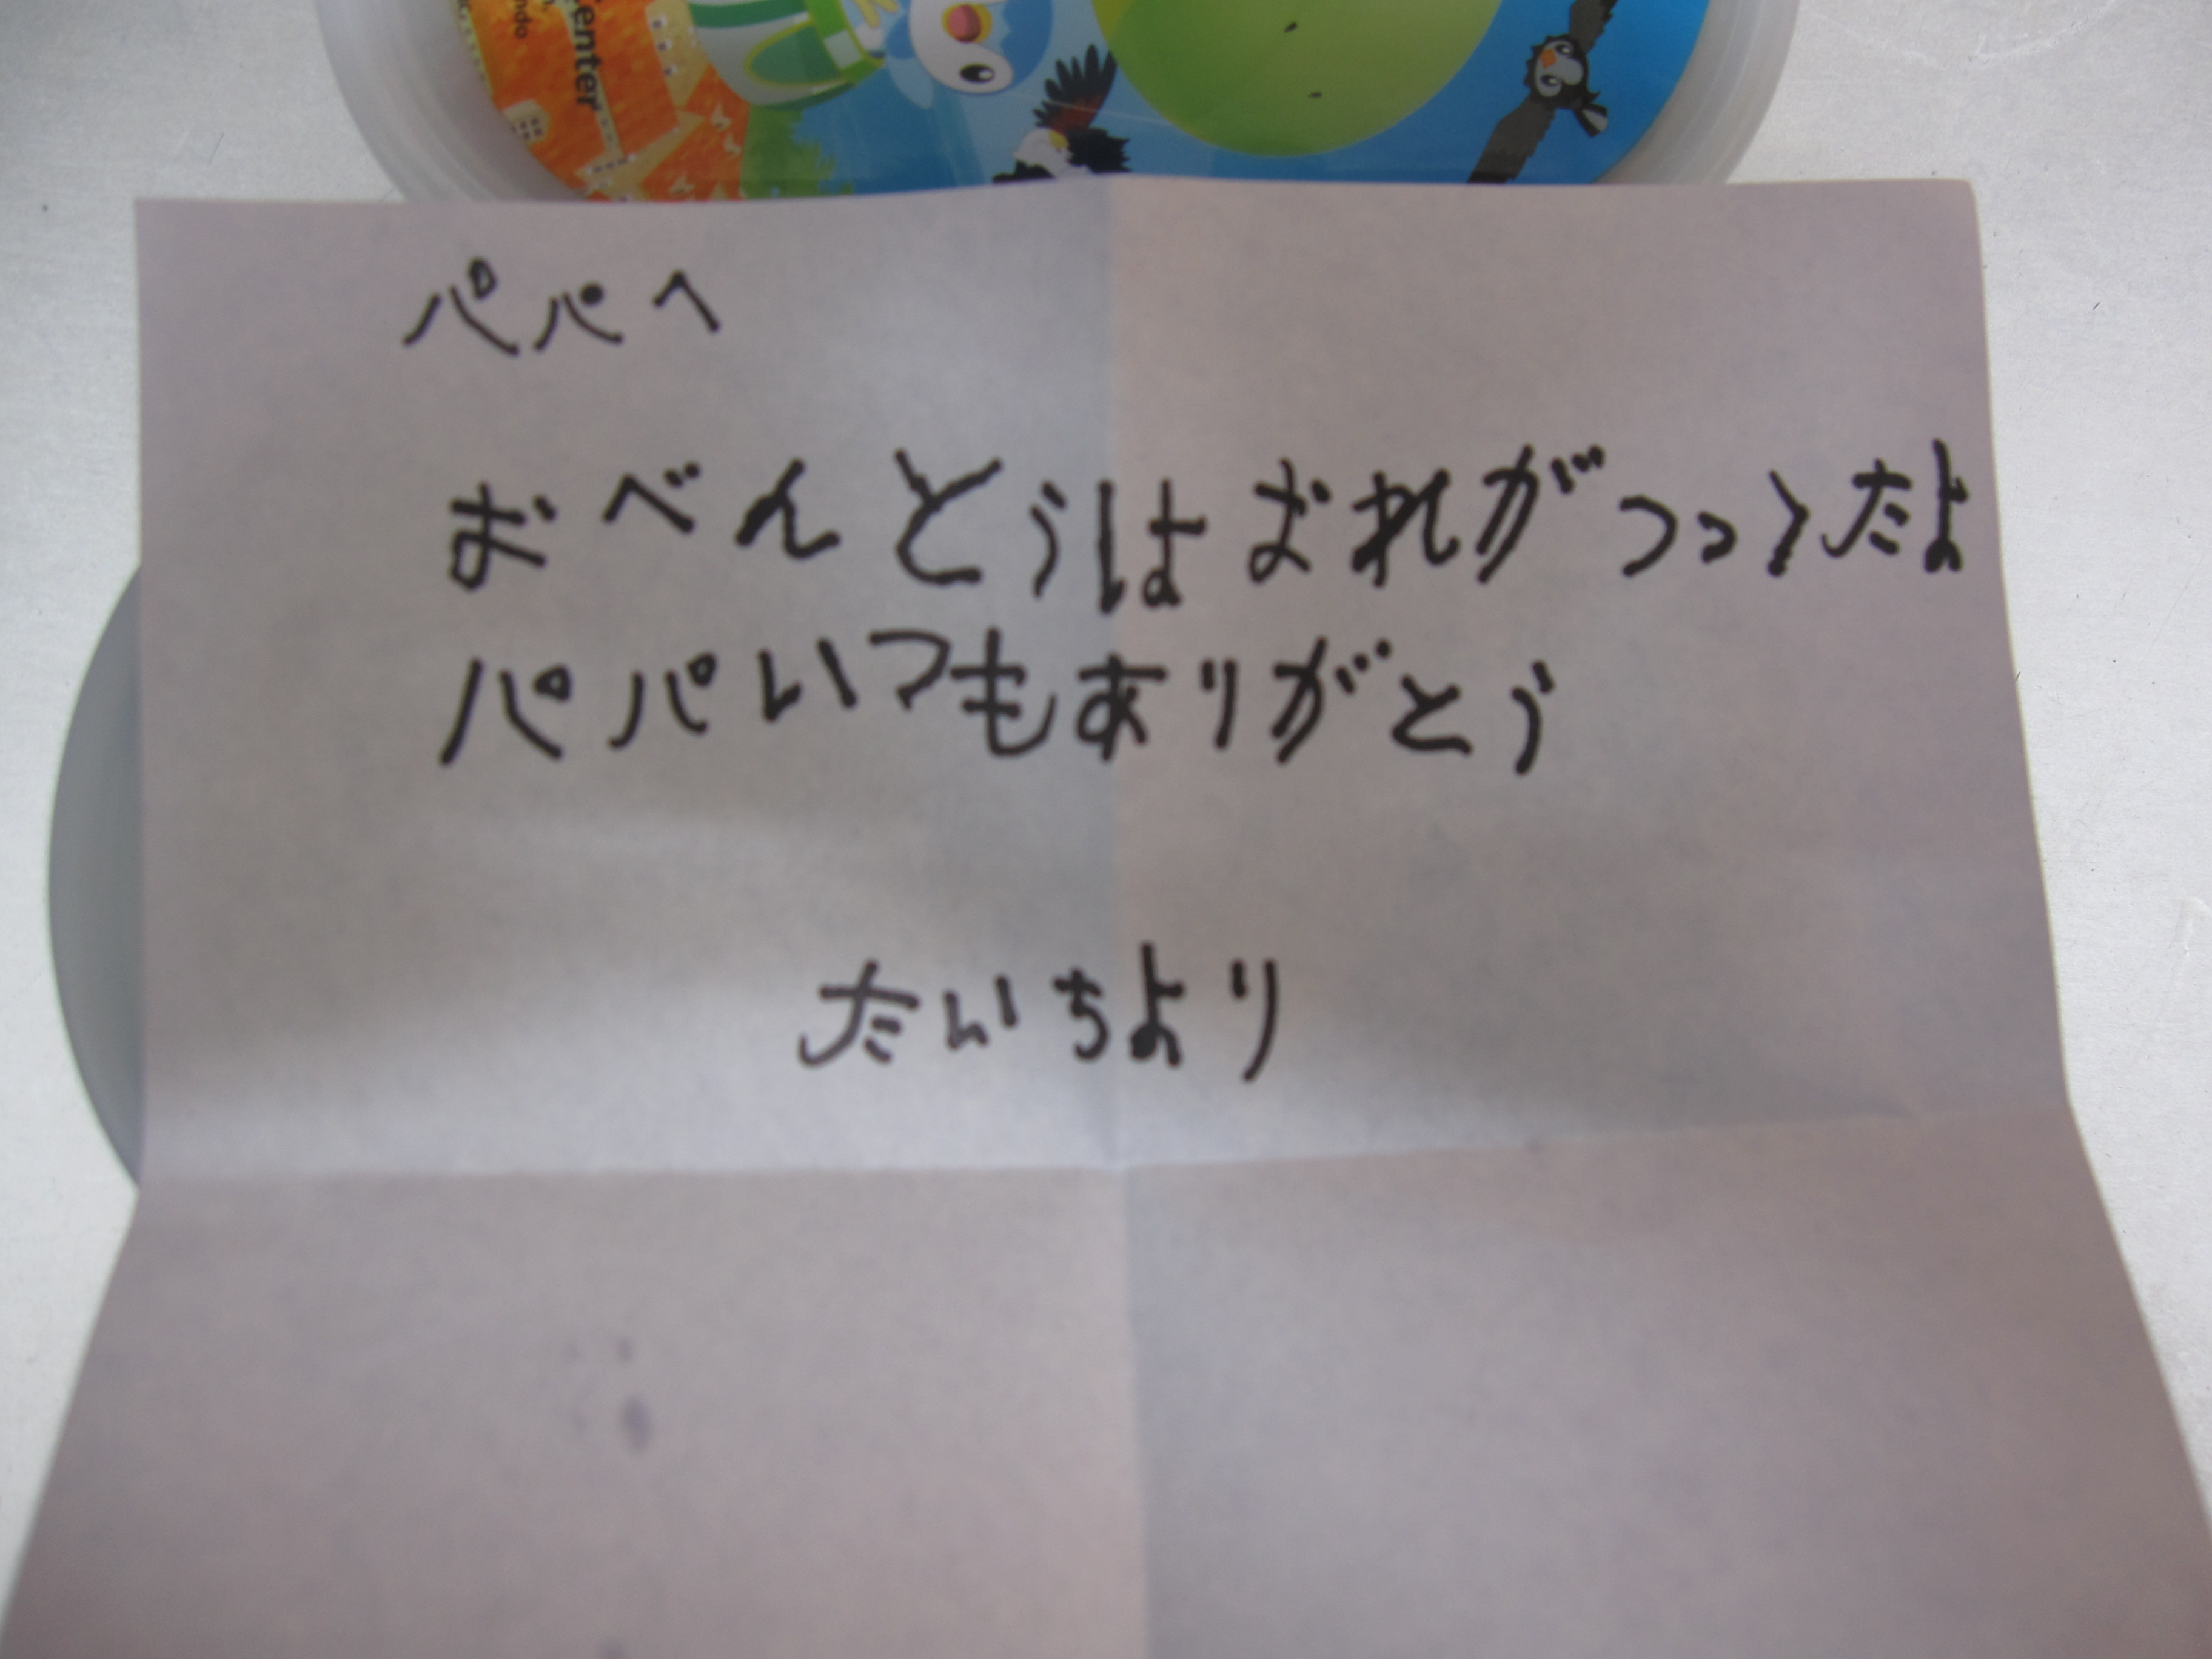 Center
パパへ
おべんとうはおれがつっくたよ
パパいつもありがとう
たいちより